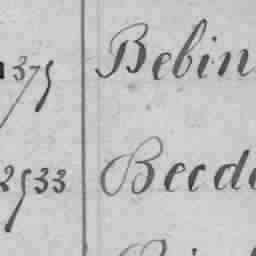 375 Bebin
2533 Becd